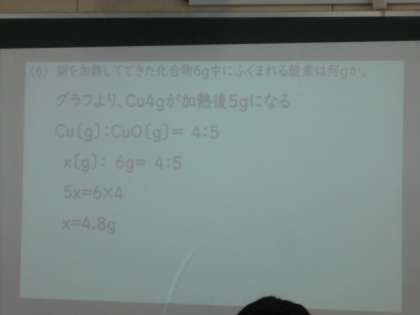 (6) 銅を加熱してできた化合物6g中にふくまれる酸素は何gか。
グラフより、Cu4gが加熱後5gになる
Cu[g]:CuO[g]= 4:5
x[g]: 6g= 4:5
5x=6×4
x=4.8g